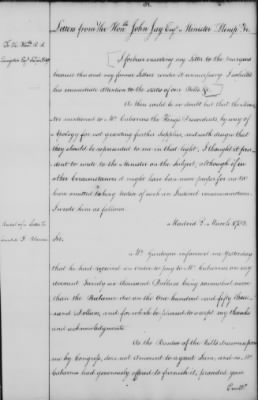 Letters from His Honble John Jay Esqr Minister Plenpo &c
To the Honble R. R.
Livingston Esqr
I forbear inserting my letter to the marquis
because this and my former Letters render it unnecessary. I solicited
his immediate attention to the state of our Bills &c.
As there could be no doubt but that the
mentioned to Mr Cabarrus the Kings Necessities, by way of
Apology for not granting further supplies, and with design that
they should be represented to me in that light, I thought it pru-
dent to write to the Minister on the subject, although if in
other circumstances it might have been more proper for me to
have omitted taking notice of such an Indirect communication.
I wrote him as follows.
Madrid 2d March 1782.
Copy of a Letter to
Count de F. Blanca
Sir,
Mr Gardoqui informed me Yesterday
that he had received an order to pay to Mr Cabarrus on my
account Twenty six thousand Dollars being somewhat more
than the Balance due on the One hundred and fifty thou-
sand Dollars, and for which be pleased to accept my thanks
and acknowledgments.
As the Residue of the Bills drawn upon
me by Congress, does not amount to a great Sum, and as Mr
Cabarrus had generously offered to furnish it, provided your
Excelly